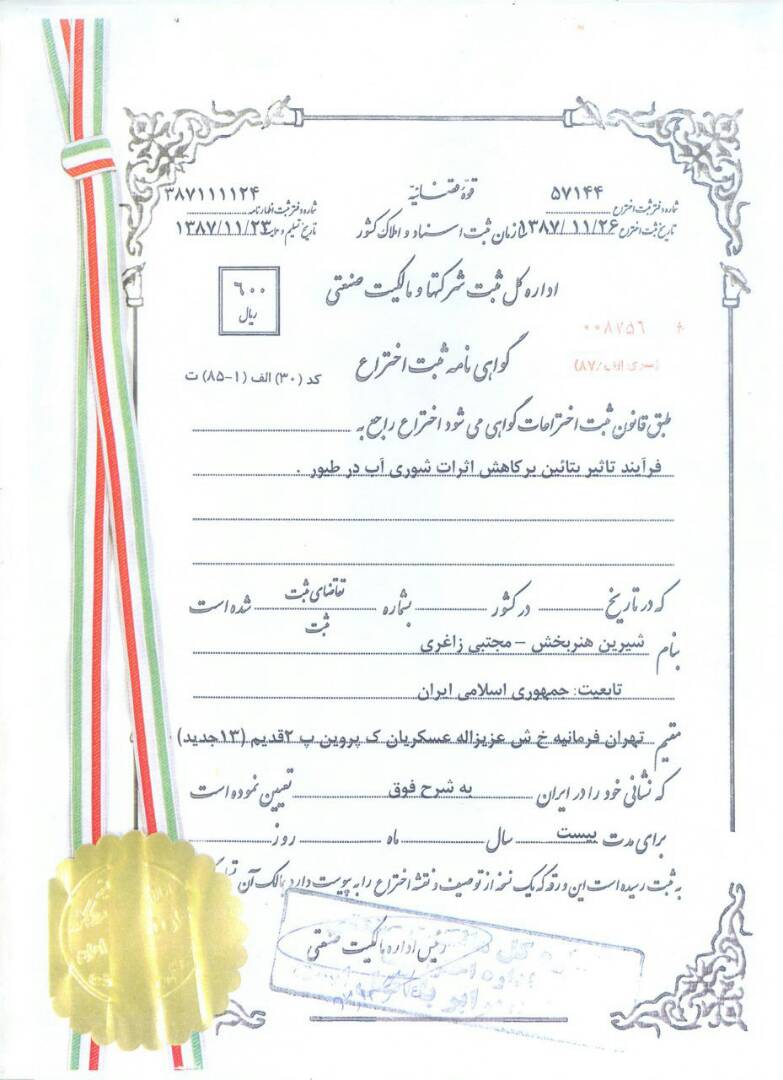 قوه قضائیه
سازمان ثبت اسناد و املاک کشور
۵۷۱۴۴
شماره دفتر ثبت اختراع
تاریخ ثبت اختراع ۱۳۸۷/۱۱/۲۶
۳۸۷۱۱۱۱۲۴
شماره دفتر ثبت اظهارنامه
تاریخ تسلیم ۱۳۸۷/۱۱/۲۳
اداره کل ثبت شرکتها و مالکیت صنعتی
۶۰۰
ریال
۰۰۸۷۵۶
(سری الف/۸۷)
گواهی نامه ثبت اختراع
کد (۳۰) الف (۱-۸۵) ت
طبق قانون ثبت اختراعات گواهی می شود اختراع راجع به
فرآیند تاثیر بتائین برکاهش اثرات شوری آب در طیور .
که در تاریخ در کشور بشماره تقاضای ثبت شده است
ثبت
بنام شیرین هنربخش – مجتبی زاغری
تابعیت: جمهوری اسلامی ایران
مقیم تهران فرمانیه خ ش عزیزاله عسکریان ک پروین پ ۲قدیم (۱۳جدید)
که نشانی خود را در ایران به شرح فوق تعیین نموده است
برای مدت بیست سال ماه روز
به ثبت رسیده است این ورقه که یک نسخه از توصیف و نقشه اختراع را به پیوست دارد بمالک آن
رئیس اداره مالکیت صنعتی